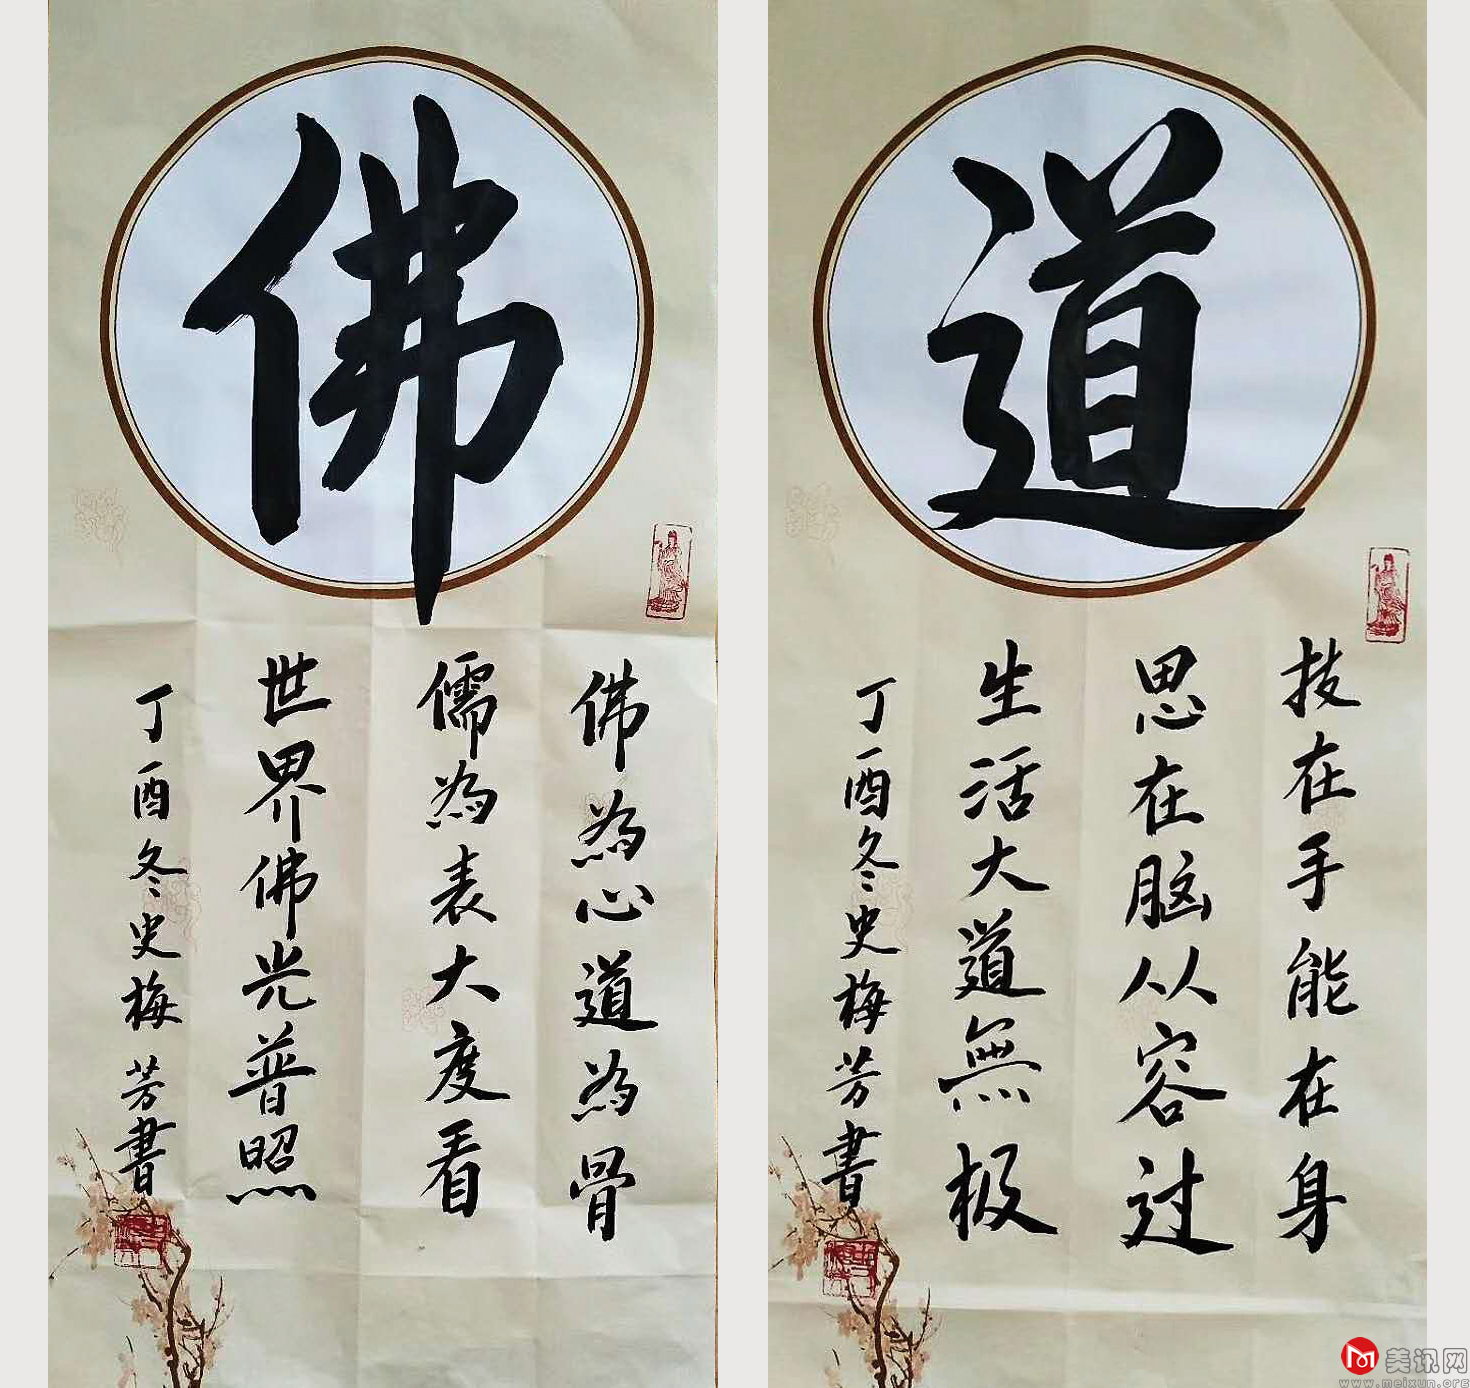 佛
佛為心道為骨
儒為表大度看
世界佛光普照
丁酉冬史梅芳書
道
技在手能在身
思在脑从容过
生活大道無极
丁酉冬史梅芳書
美讯网
www.meixun.org